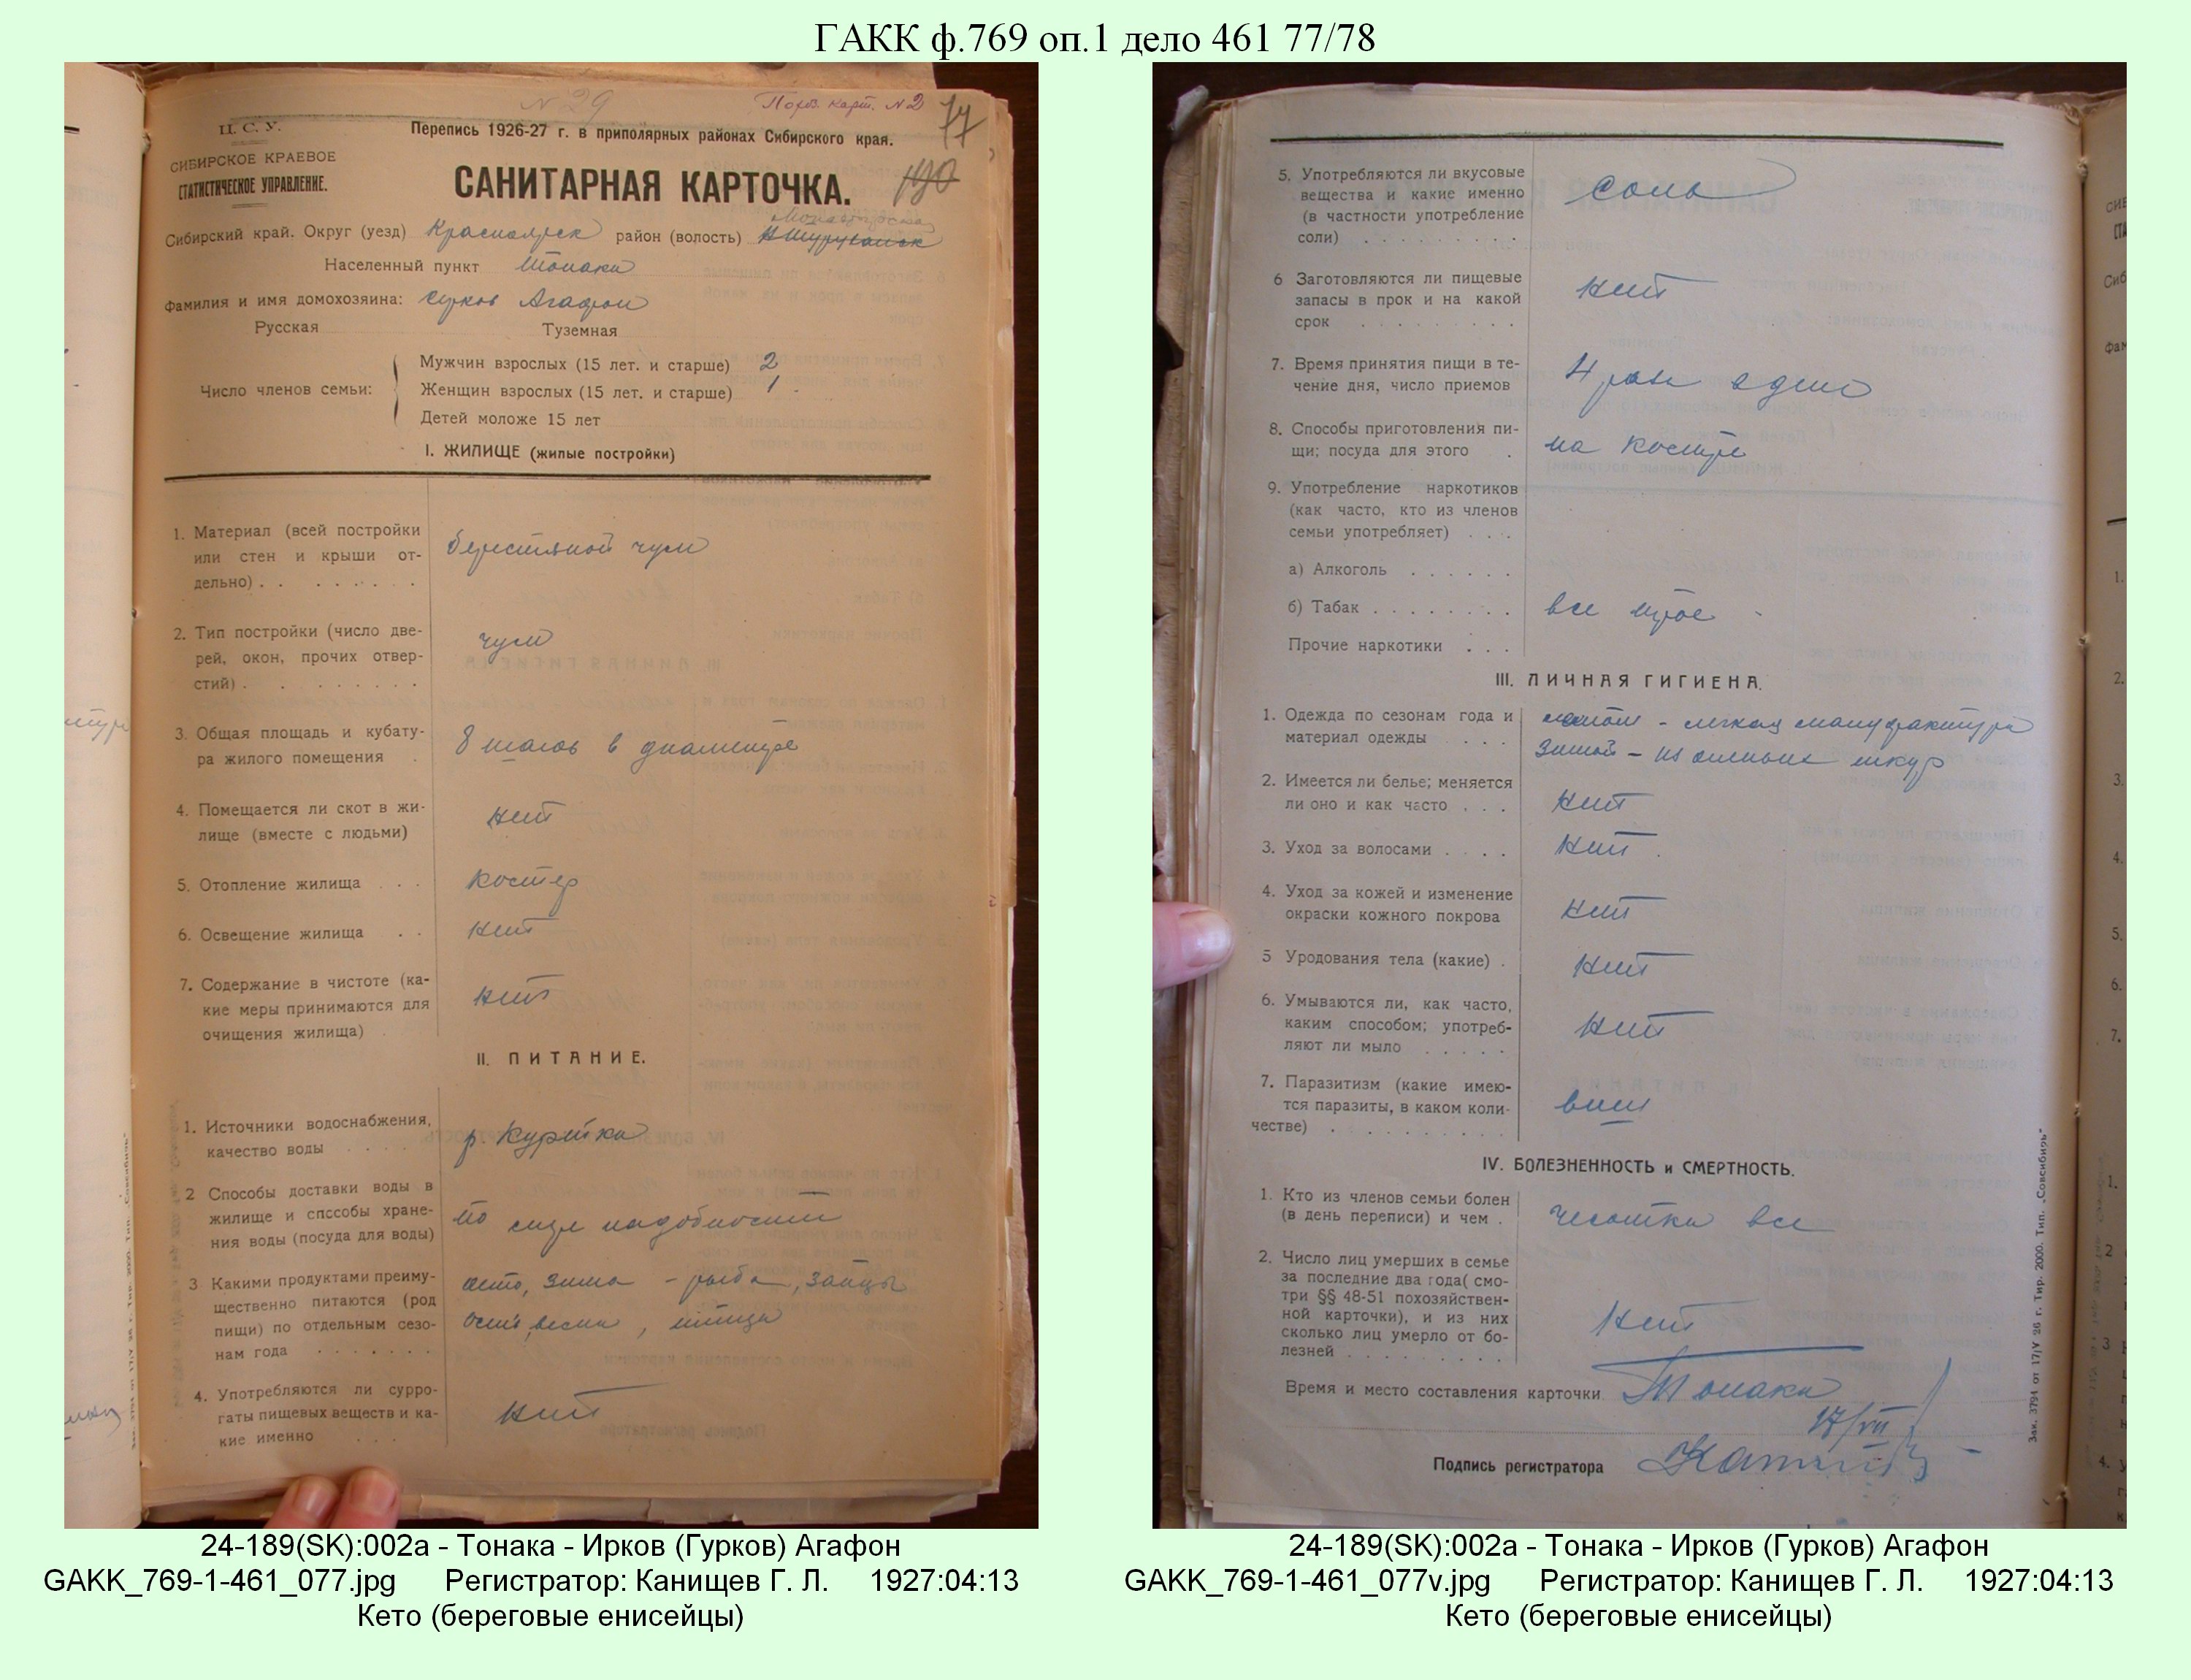 ГАКК ф.769 оп.1 дело 461 77/78
N 29
Похоз. карт. N 2
77
Ц. С. У.
СИБИРСКОЕ КРАЕВОЕ
СТАТИСТИЧЕСКОЕ УПРАВЛЕНИЕ.
Перепись 1926-27 г. в приполярных районах Сибирского края.
САНИТАРНАЯ КАРТОЧКА.
190
Сибирский край. Округ (уезд) Красноярск район (волость)
Населенный пункт Тонака
Фамилия и имя домохозяина: Агафон
Русская Туземная
Число членов семьи:
Мужчин взрослых (15 лет. и старше) 2
Женщин взрослых (15 лет. и старше) 1
Детей моложе 15 лет
I. ЖИЛИЩЕ (жилые постройки)
1. Материал (всей постройки
или стен и крыши от-
дельно) . . . . . . . .
берестяной чум
2. Тип постройки (число две-
рей, окон, прочих отвер-
стий) . . . . . . . .
чум
3. Общая площадь и кубату-
ра жилого помещения .
8 шагов в диаметре
4. Помещается ли скот в жи-
лище (вместе с людьми)
нет
5. Отопление жилища . . . костер
6. Освещение жилища . . нет
7. Содержание в чистоте (ка-
кие меры принимаются для
очищения жилища) .
нет
II. ПИТАНИЕ.
1. Источники водоснабжения,
качество воды . . . .
р Курейка
2 Способы доставки воды в
жилище и способы хране-
ния воды (посуда для воды)
по мере надобности
3 Какими продуктами преиму-
щественно питаются (род
пищи) по отдельным сезо-
нам года . . . . . . .
лето, зима - рыба, зайцы
осень, весна, птица
4. Употребляются ли сурро-
гаты пищевых веществ и ка-
кие именно . . .
нет
5. Употребляются ли вкусовые
вещества и какие именно
(в частности употребление
соли) . . . . . . . . .
соль
6 Заготовляются ли пищевые
запасы в прок и на какой
срок . . . . . . . . .
нет
7. Время принятия пищи в те-
чение дня, число приемов
4 раза в день
8. Способы приготовления пи-
щи; посуда для этого .
на костре
9. Употребление наркотиков
(как часто, кто из членов
семьи употребляет) . . .
а) Алкоголь . . . . . .
б) Табак . . . . . . . . все трое
Прочие наркотики . . .
III. ЛИЧНАЯ ГИГИЕНА.
1. Одежда по сезонам года и
материал одежды . . .
летом - легкая мануфактура
зимой - из оленьих шкур
2. Имеется ли белье; меняется
ли оно и как часто . . .
нет
3. Уход за волосами . . . . нет
4. Уход за кожей и изменение
окраски кожного покрова
нет
5 Уродования тела (какие) . нет
6. Умываются ли, как часто,
каким способом; употреб-
ляют ли мыло . . . . .
нет
7. Паразитизм (какие имею-
тся паразиты, в каком коли-
честве) . . . . . . . . .
вши
IV. БОЛЕЗНЕННОСТЬ и СМЕРТНОСТЬ.
1. Кто из членов семьи болен
(в день переписи) и чем .
чесотка все
2. Число лиц умерших в семье
за последние два года( смо-
три §§ 48-51 похозяйствен-
ной карточки), и из них
сколько лиц умерло от бо-
лезней . . . . . . . . .
нет
Время и место составления карточки Тонака
17/VII
Подпись регистратора
Зак. 3794 от 17/V 26 г. Тир. 2000. Тип. „Совсибирь"
24-189(SK):002a - Тонака - Ирков (Гурков) Агафон
GAKK_769-1-461_077.jpg Регистратор: Канищев Г. Л. 1927:04:13
Кето (береговые енисейцы)
24-189(SK):002a - Тонака - Ирков (Гурков) Агафон
GAKK_769-1-461_077v.jpg Регистратор: Канищев Г. Л. 1927:04:13
Кето (береговые енисейцы)